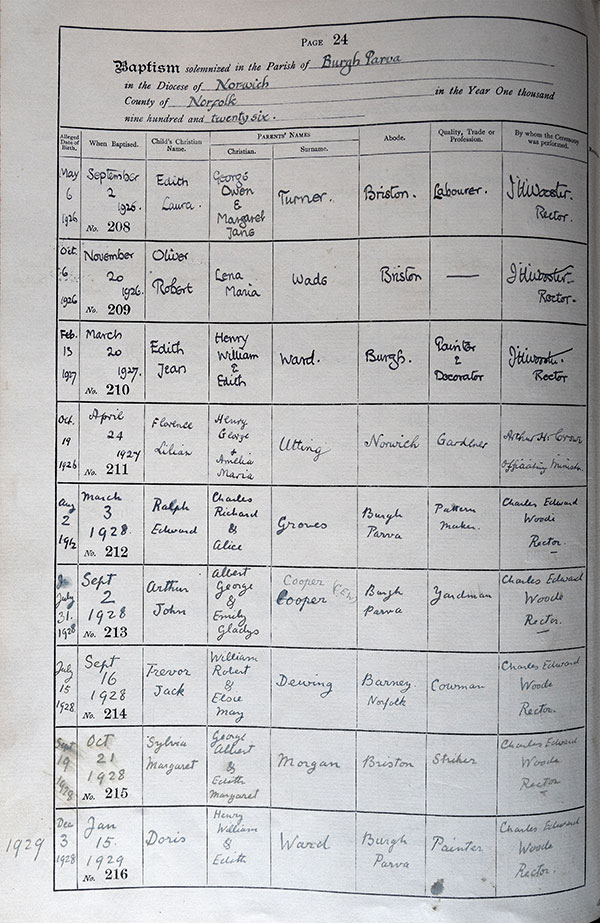 PAGE 24
Baptism solemnized in the Parish of Burgh Parva
in the Diocese of Norwich in the Year One thousand
County of Norfolk
nine hundred and twenty six.
Alleged Date of Birth.
When Baptised.
Child's Christian Name.
PARENTS' NAMES
Christian.
Surname.
Abode.
Quality, Trade or Profession.
By whom the Ceremony was performed.
May 6 1926
September 2 1926.
No. 208
Edith Laura.
George Owen & Margaret Jane
Turner.
Briston.
Labourer.
Rector.
Oct. 6 1926
November 20 1926.
No. 209
Oliver Robert
Lena Maria
Wade
Briston
Rector.
Feb. 13 1927
March 20 1927.
No. 210
Edith Jean
Henry William & Edith
Ward.
Burgh.
Painter & Decorator
Rector
Oct. 19 1926
April 24 1927
No. 211
Florence Lilian
Henry George + Amelia Maria
Utting
Norwich
Gardener
Arthur H.
Officiating Minister
Aug 2 1912
March 3 1928
No. 212
Ralph Edward
Charles Richard & Alice
Groves
Burgh Parva
Pattern Maker.
Charles Edward Woode Rector.
July 31. 1928
Sept 2 1928
No. 213
Arthur John
Albert George & Emily Gladys
Cooper
Cooper
Burgh Parva
Yardman
Charles Edward Woode Rector.
July 15 1928
Sept 16 1928
No. 214
Trevor Jack
William Robert & Elsie May
Dewing
Barney Norfolk
Cowman
Charles Edward Woode Rector.
Sept 19 1928
Oct 21 1928
No. 215
Sylvia Margaret
George Albert & Edith Margaret
Morgan
Briston
Striker
Charles Edward Woode Rector
1929
Dec 3 1928
Jan 15. 1929
No. 216
Doris
Henry William & Edith
Ward
Burgh Parva
Painter
Charles Edward Woode Rector.